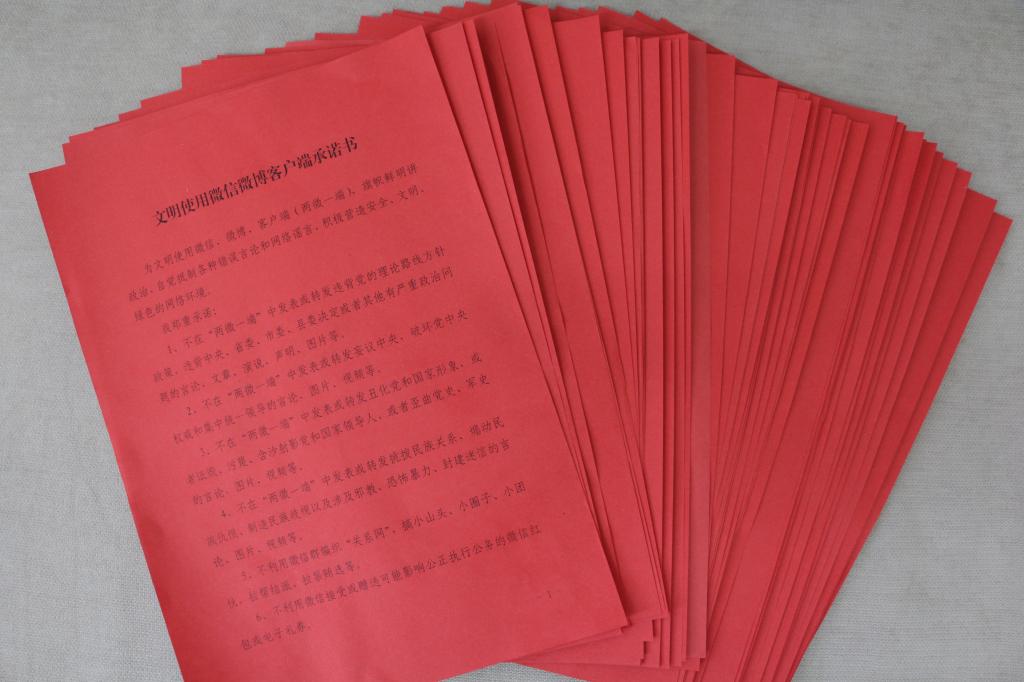 文明使用微信微博客户端承诺书
为文明使用微信、微博、客户端（两微一端），旗帜鲜明讲
政治，自觉抵制各种错误言论和网络谣言，积极营造安全、文明、
绿色的网络环境。
我郑重承诺：
1、不在“两微一端”中发表或转发违背党的理论路线方针
政策，违背中央、省委、市委、县委决定或者其他有严重政治问
题的言论、文章、演说、声明、图片等。
2、不在“两微一端”中发表或转发妄议中央、破坏党中央
权威和集中统一领导的言论、图片、视频等。
3、不在“两微一端”中发表或转发丑化党和国家形象，或
者诋毁、污蔑、含沙射影党和国家领导人，或者歪曲党史、军史
的言论、图片、视频等。
4、不在“两微一端”中发表或转发挑拨民族关系、煽动民
族仇恨、制造民族歧视以及涉及邪教、恐怖暴力、封建迷信的言
论、图片、视频等。
5、不利用微信群编织“关系网”，搞小山头、小圈子、小团
伙，拉帮结派、拉票贿选等。
6、不利用微信接受或赠送可能影响公正执行公务的微信红
包或电子礼券。
1